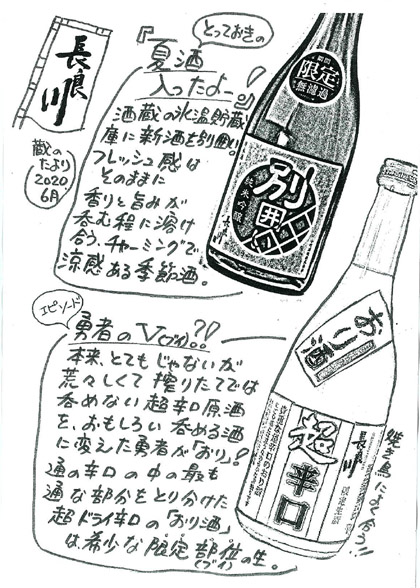 長良川
蔵の
たより
2020
6月
とっておきの
『夏酒
入ったよー。』
酒蔵の氷温貯蔵
庫に新酒を別囲い。
フレッシュ感は
そのままに
香りと旨みが
呑む程に溶け
合う、チャーミングで
涼感ある季節酒。
期間
限定
無濾過
別囲
純米吟醸
エピソード
勇者のVブイ!?
本来、とてもじゃないが
荒々しくて搾りたてでは
呑めない超辛口原酒
を、おもしろい呑める酒
に変えた勇者が「おり」!
通の辛口の中の最も
通な部分をとり分けた
超ドライ辛口の「おり酒」
は希少な限定部位の生。
(ブイ)
おり酒
長良川
超
辛口
焼き鳥によく合う!!